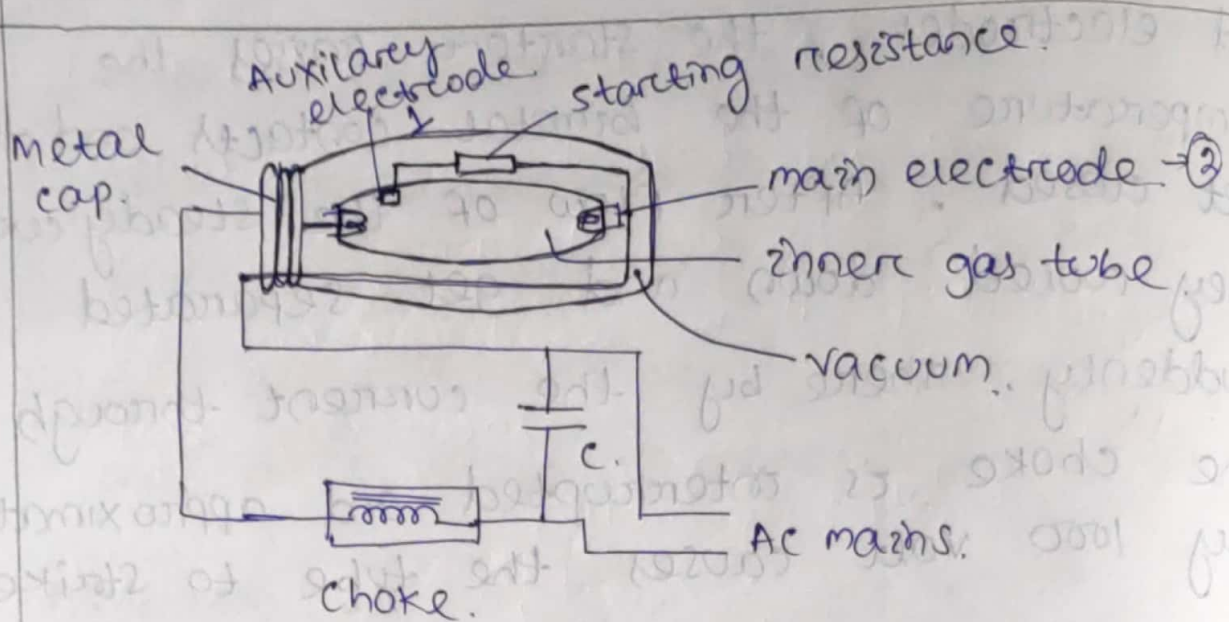 Auxilarey
electrode.
starting resistance.
Metal
cap.
main electrode → ②
inner gas tube
vacuum.
C.
AC mains.
choke.